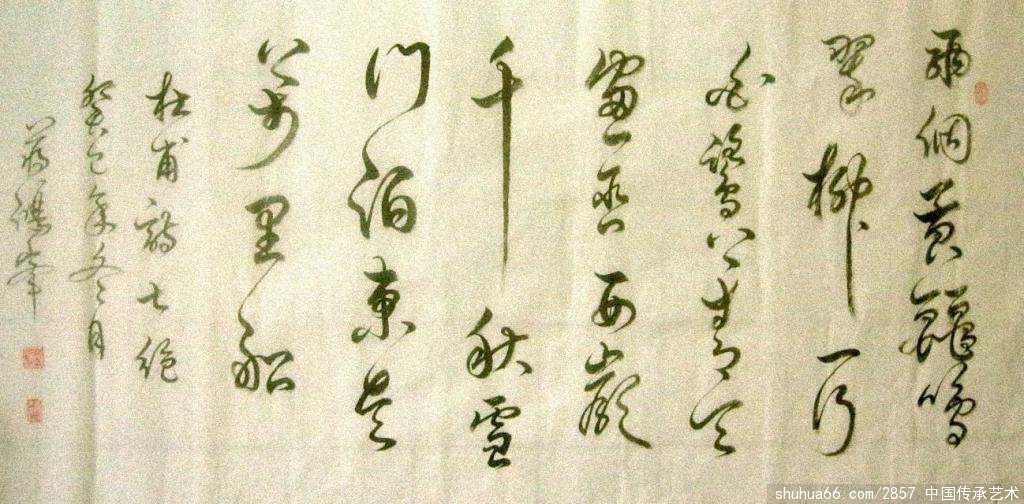 兩個黄鸝鳴
翠柳一行
白鷺上青天
窗含西嶺
千秋雪
門泊東吴
萬里船
杜甫詩七絶
癸巳年冬月
蒋
shuhua66.com/2857 中国传承艺术